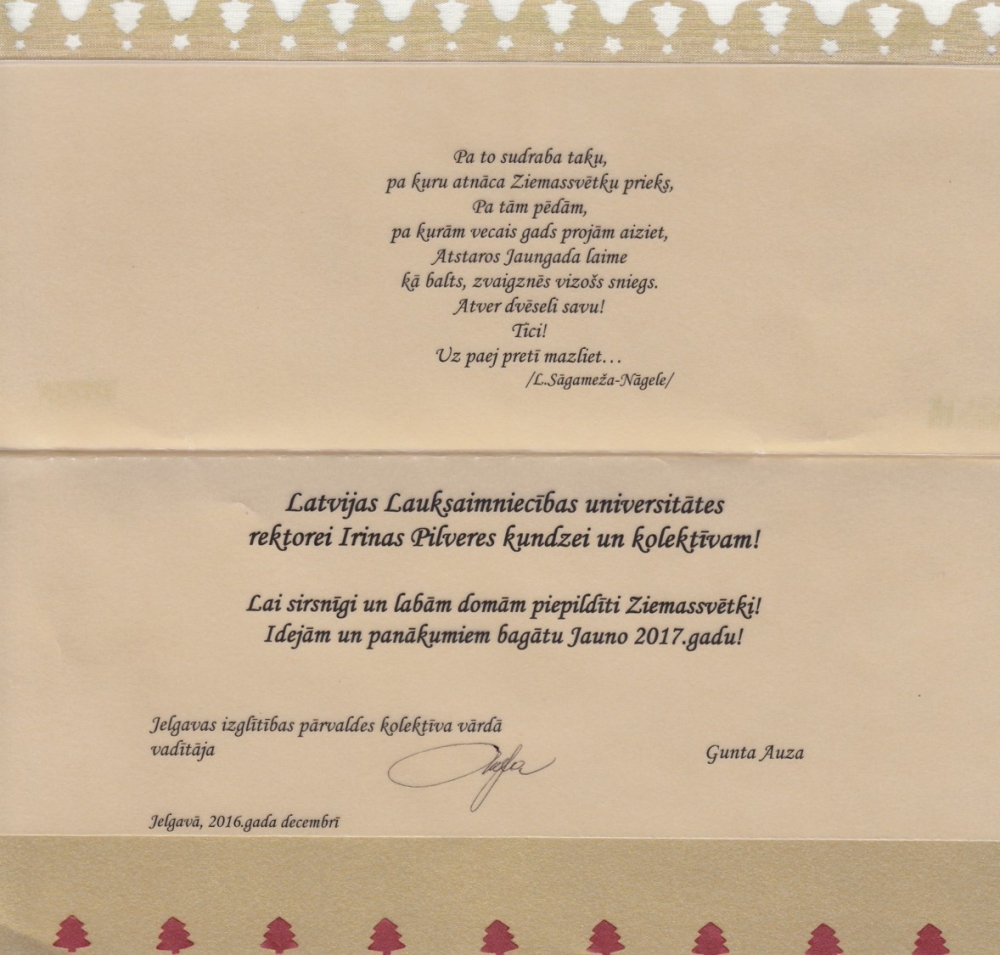 Pa to sudraba taku,
pa kuru atnāca Ziemassvētku prieks,
Pa tām pēdām,
pa kurām vecais gads projām aiziet,
Atstaros Jaungada laime
kā balts, zvaigznēs vizošs sniegs.
Atver dvēseli savu!
Tici!
Uz paej pretī mazliet…
/L.Sāgameža-Nāgele/
Latvijas Lauksaimniecības universitātes
rektorei Irinas Pilveres kundzei un kolektīvam!
Lai sirsnīgi un labām domām piepildīti Ziemassvētki!
Idejām un panākumiem bagātu Jauno 2017.gadu!
Jelgavas izglītības pārvaldes kolektīva vārdā
vadītāja Gunta Auza
Jelgavā, 2016.gada decembrī